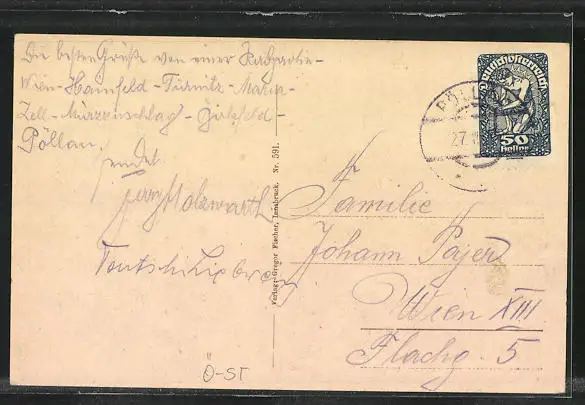 Die besten Grüße von einer Radpartie-
Wien-Hainfeld-Türnitz-Maria-
Zell-Mürzzuschlag-Birkfeld-
Pöllau.
sendet
Holzwarth
Verlag: Gregor Fischer, Innsbruck. Nr. 591.
Deutschösterreich
50
Heller
PÖLL
27.
Familie
Johann Payer
Wien XIII
Flachg. 5
Ö-ST